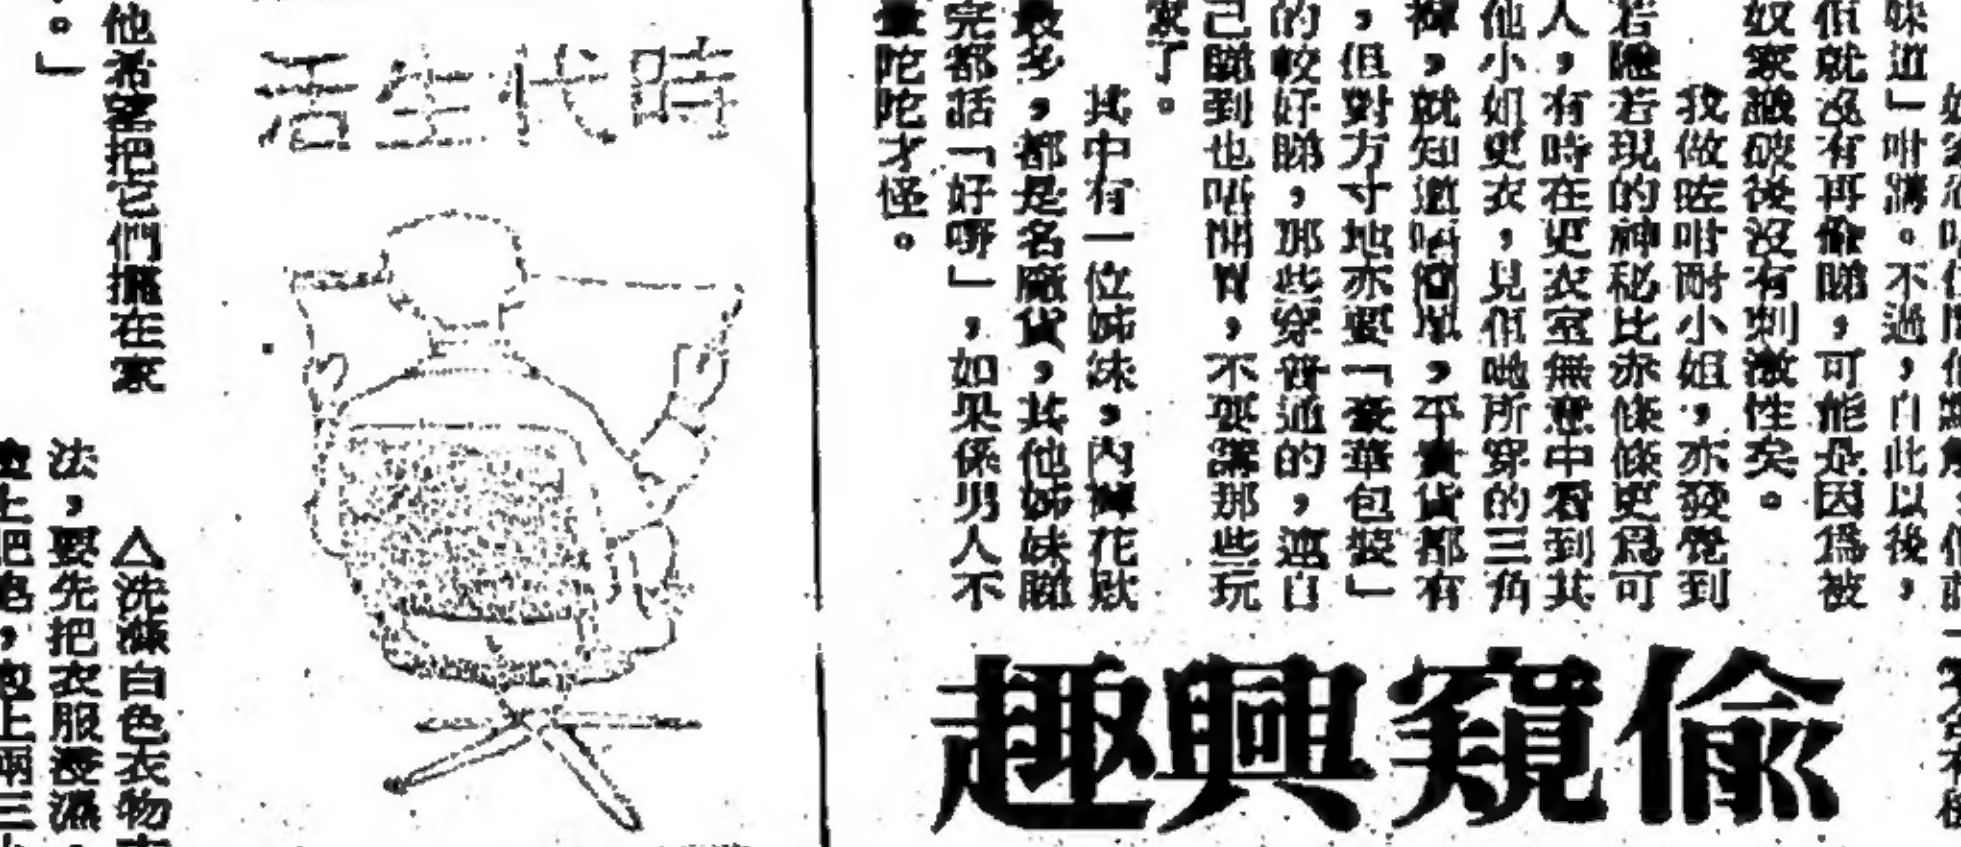 妹道」咁講。不過，自此以後，
佢就沒有再偷睇，可能是因爲被
奴家識破後沒有刺激性矣。
我做咗咁耐小姐，亦發覺到
若隱若現的神秘比赤條條更爲可
人，有時在更衣室無意中看到其
他小姐更衣，見佢哋所穿的三角
褲，就知道唔簡單，平貴貨都有
，但對方寸地亦要「豪華包裝」
的較好睇，那些穿普通的，連自
己睇到也唔開胃，不要講那些玩
家了。
其中有一位姊妹，內褲花款
最多，都是名廠貨，其他姊妹睇
完都話「好嘢」，如果係男人不
暈陀陀才怪。
偷窺興趣
時代生活
他希望把它們擺在家
。」
△洗滌白色衣物
法，要先把衣服浸濕